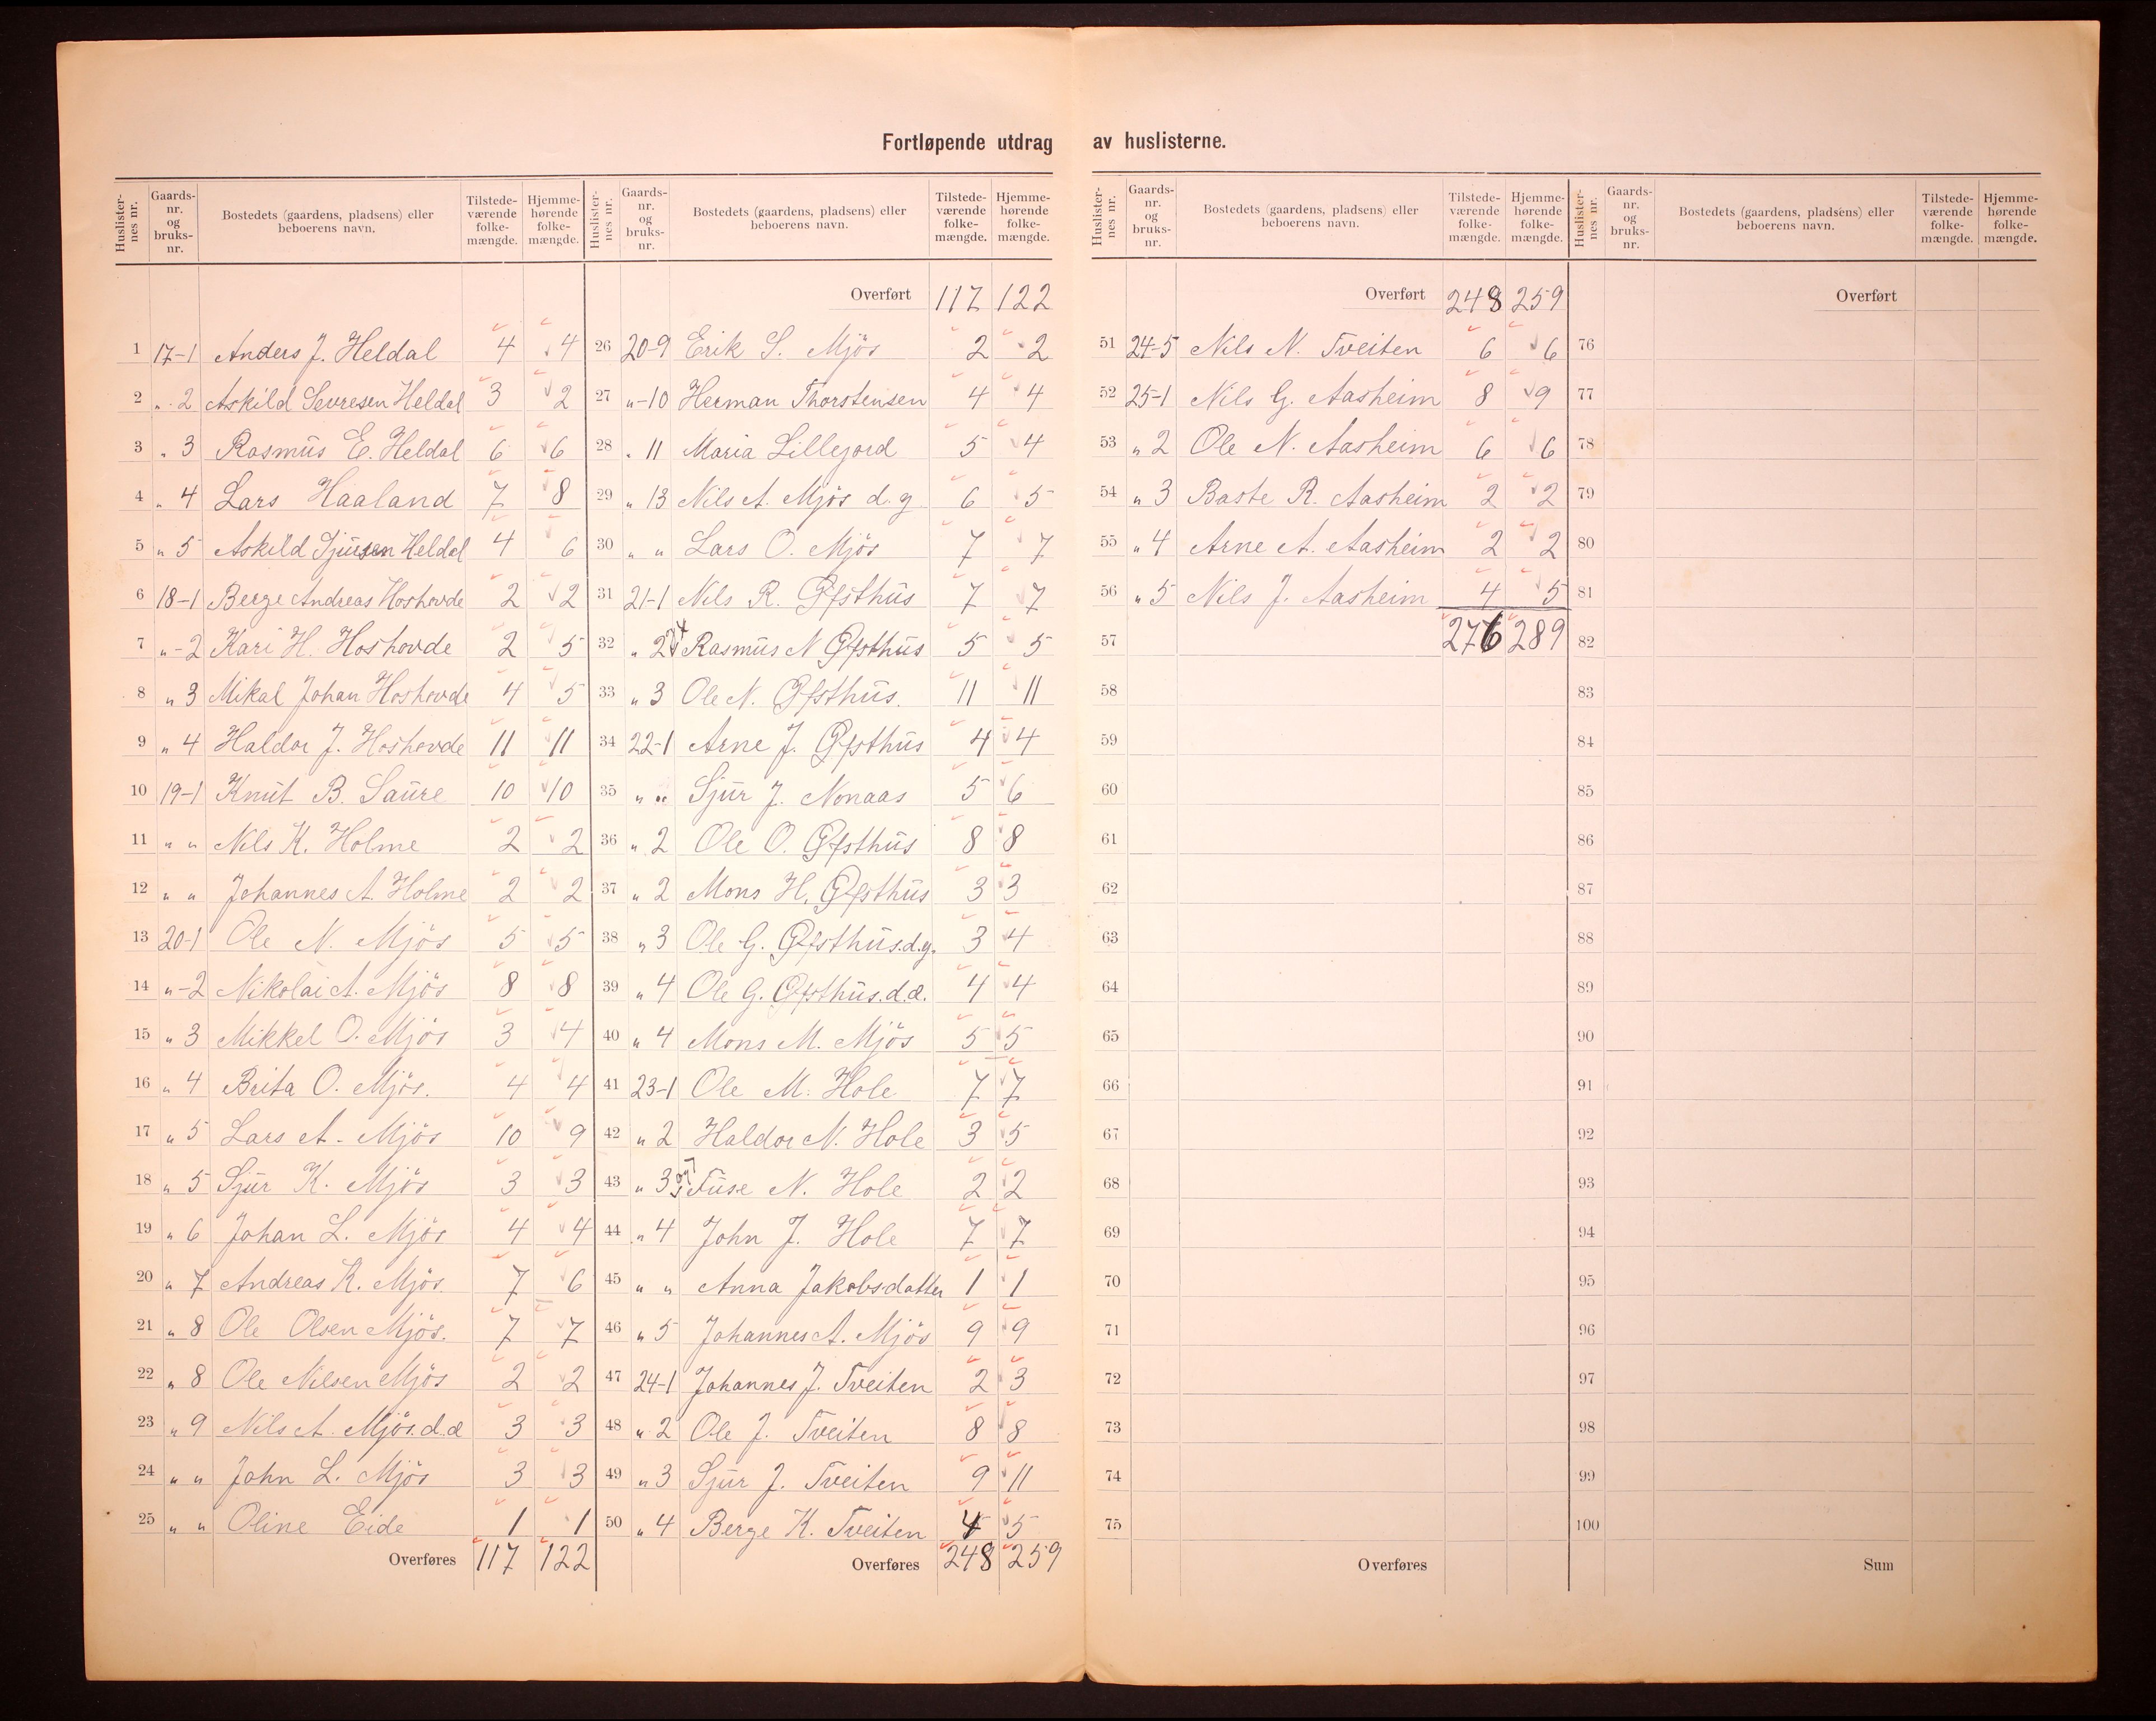 Fortløpende utdrag av huslisterne.
Huslisternes nr. Gaardsnr. og bruksnr. Bostedets (gaardens, pladsens) eller beboerens navn. Tilstedeværende folkemængde. Hjemmehørende folkemængde.
1 17-1 Anders J. Heldal 4 4
2 " 2 Askild Sevresen Heldal 3 2
3 " 3 Rasmus E. Heldal 6 6
4 " 4 Lars Haaland 7 8
5 " 5 Askild Sjursen Heldal 4 6
6 18-1 Berge Andreas Hoshovde 2 2
7 "-2 Kari H. Hoshovde 2 5
8 " 3 Mikal Johan Hoshovde 4 5
9 " 4 Haldor J. Hoshovde 11 11
10 19-1 Knut B. Saure 10 10
11 " " Nils K. Holme 2 2
12 " " Johannes A. Holme 2 2
13 20-1 Ole N. Mjös 5 5
14 "-2 Nikolai A. Mjös 8 8
15 " 3 Mikkel O. Mjös 3 4
16 " 4 Brita O. Mjös. 4 4
17 " 5 Lars A. Mjös 10 9
18 " 5 Sjur K. Mjös 3 3
19 " 6 Johan L. Mjös 4 4
20 " 7 Andreas K. Mjös. 7 6
21 " 8 Ole Olsen Mjös. 7 7
22 " 8 Ole Nilsen Mjös 2 2
23 " 9 Nils A. Mjös. d.æ 3 3
24 " " John L. Mjös 3 3
25 " " Oline Eide 1 1
Overføres 117 122
Huslisternes nr. Gaardsnr. og bruksnr. Bostedets (gaardens, pladsens) eller beboerens navn. Tilstedeværende folkemængde. Hjemmehørende folkemængde.
Overført 117 122
26 20-9 Erik S. Mjös 2 2
27 "-10 Herman Thorstensen 4 4
28 " 11 Maria Lillejord 5 4
29 " 13 Nils A. Mjös d. y 6 5
30 " " Lars O. Mjös 7 7
31 21-1 Nils R. Øfsthus 7 7
32 " 2 Rasmus N Øfsthus 5 5
33 " 3 Ole N. Øfsthus. 11 11
34 22-1 Arne J. Øfsthus 4 4
35 " " Sjur J. Nonaas 5 6
36 " 2 Ole O. Øfsthus 8 8
37 " 2 Mons H. Øfsthus 3 3
38 " 3 Ole G. Øfsthus. d.y. 3 4
39 " 4 Ole G. Øfsthus. d.æ. 4 4
40 " 4 Mons M. Mjös 5 5
41 23-1 Ole M. Hole 7 7
42 " 2 Haldor N. Hole 3 5
43 " 3 Fuse N. Hole 2 2
44 " 4 John J. Hole 7 7
45 " " Anna Jakobsdatter 1 1
46 " 5 Johannes A. Mjös 9 9
47 24-1 Johannes J. Tveiten 2 3
48 " 2 Ole J. Tveiten 8 8
49 " 3 Sjur J. Tveiten 9 11
50 " 4 Berge K. Tveiten 4 5
Overføres 248 259
Huslisternes nr. Gaardsnr. og bruksnr. Bostedets (gaardens, pladsens) eller beboerens navn. Tilstedeværende folkemængde. Hjemmehørende folkemængde.
Overført 248 259
51 24-5 Nils N. Tveiten 6 6
52 25-1 Nils G. Aasheim 8 9
53 " 2 Ole N. Aasheim 6 6
54 " 3 Baste R. Aasheim 2 2
55 " 4 Arne A. Aasheim 2 2
56 " 5 Nils J. Aasheim 4 5
57 276 289
58
59
60
61
62
63
64
65
66
67
68
69
70
71
72
73
74
75
Overføres
Huslisternes nr. Gaardsnr. og bruksnr. Bostedets (gaardens, pladsens) eller beboerens navn. Tilstedeværende folkemængde. Hjemmehørende folkemængde.
Overført
76
77
78
79
80
81
82
83
84
85
86
87
88
89
90
91
92
93
94
95
96
97
98
99
100
Sum